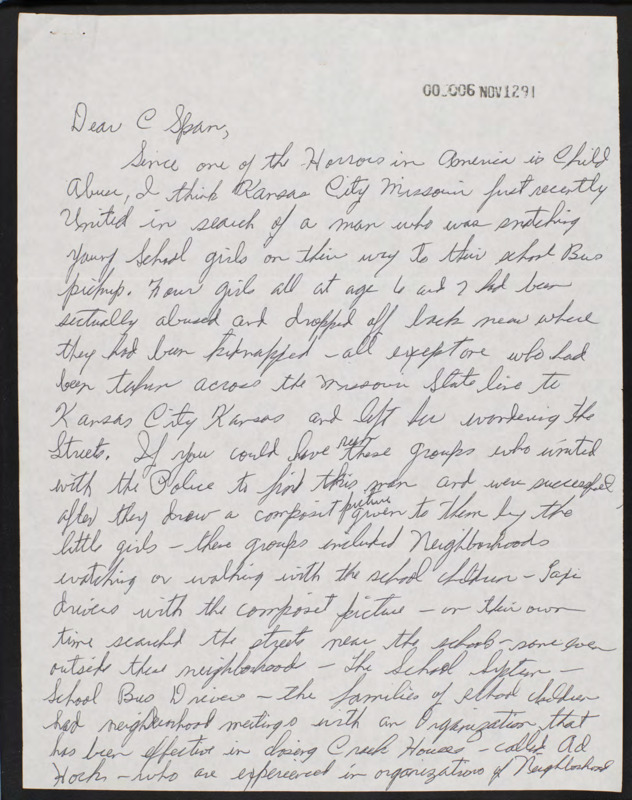 00_006 NOV1291
Dear C Span,
Since one of the Horrors in America is Child
Abuse, I think Kansas City Missouri just recently
United in search of a man who was snatching
young School girls on thier way to thier school Bus
pickup. Four girls all at age 6 and 7 had been
sectually abused and dropped off back near where
they had been kidnapped - all exept one who had
been taken across the Missouri State line to
Kansas City Kansas and left her wondering the
Streets. If you could have met these groups who united
with the Police to find this man and were successful,
after they drew a composit picture given to them by the
little girls - these groups included Neighborhoods
watching or walking with the school children - Taxi
drivers with the composit picture - on thier own
time searched the streets near the schools - some even
outside these neighborhoods - The School System -
School Bus Drivers - the families of school children
had neighborhood meetings with an Organization that
has been effective in closing Crack Houses - called Ad
Hocks - who are experienced in organizations of Neighborhood